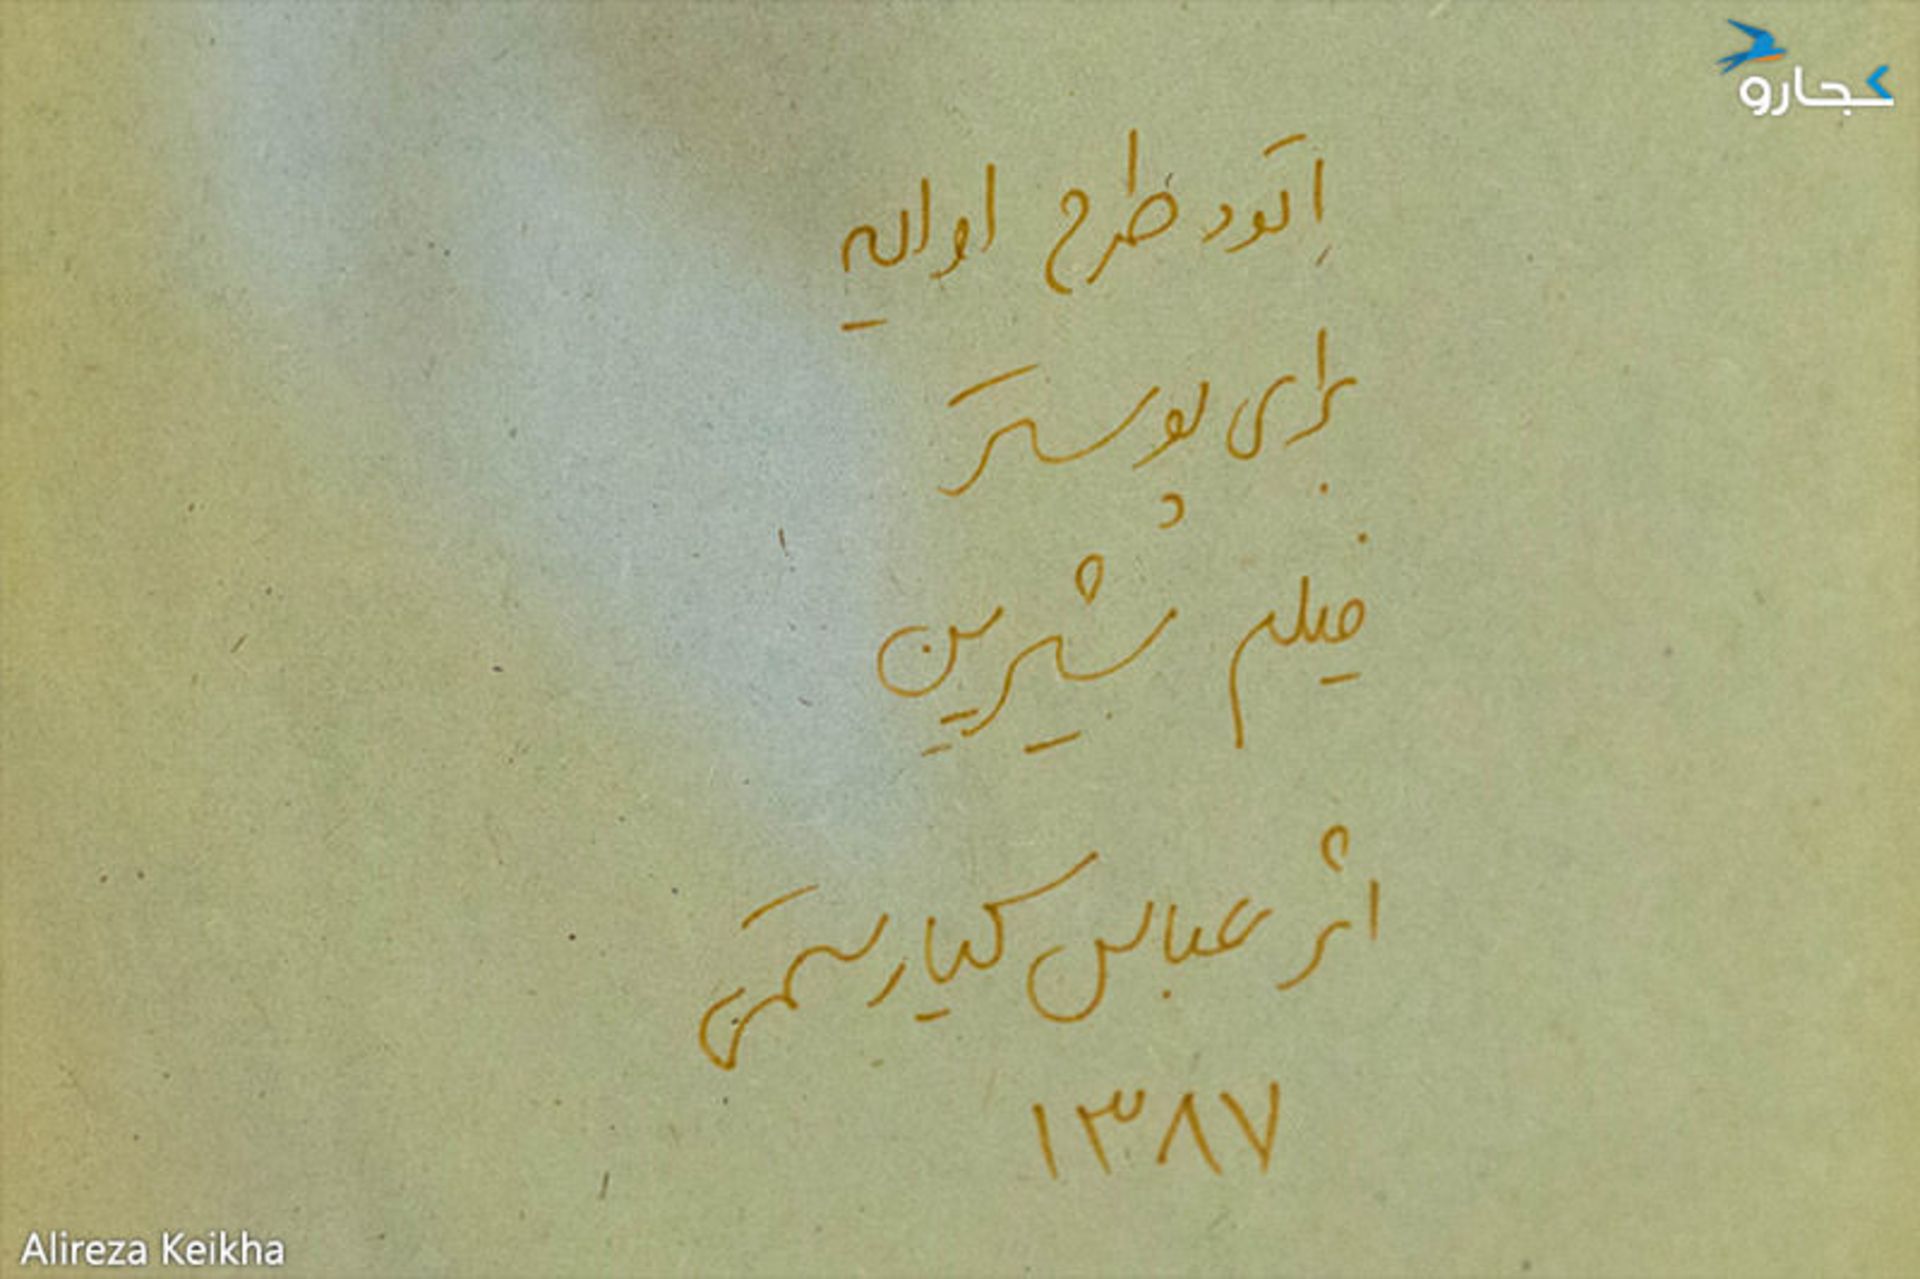 کجارو
اِتود طرح اولیه
برای پوستر
فیلم شیرین
اثر عباس کیارستمی
۱۳۸۷
Alireza Keikha